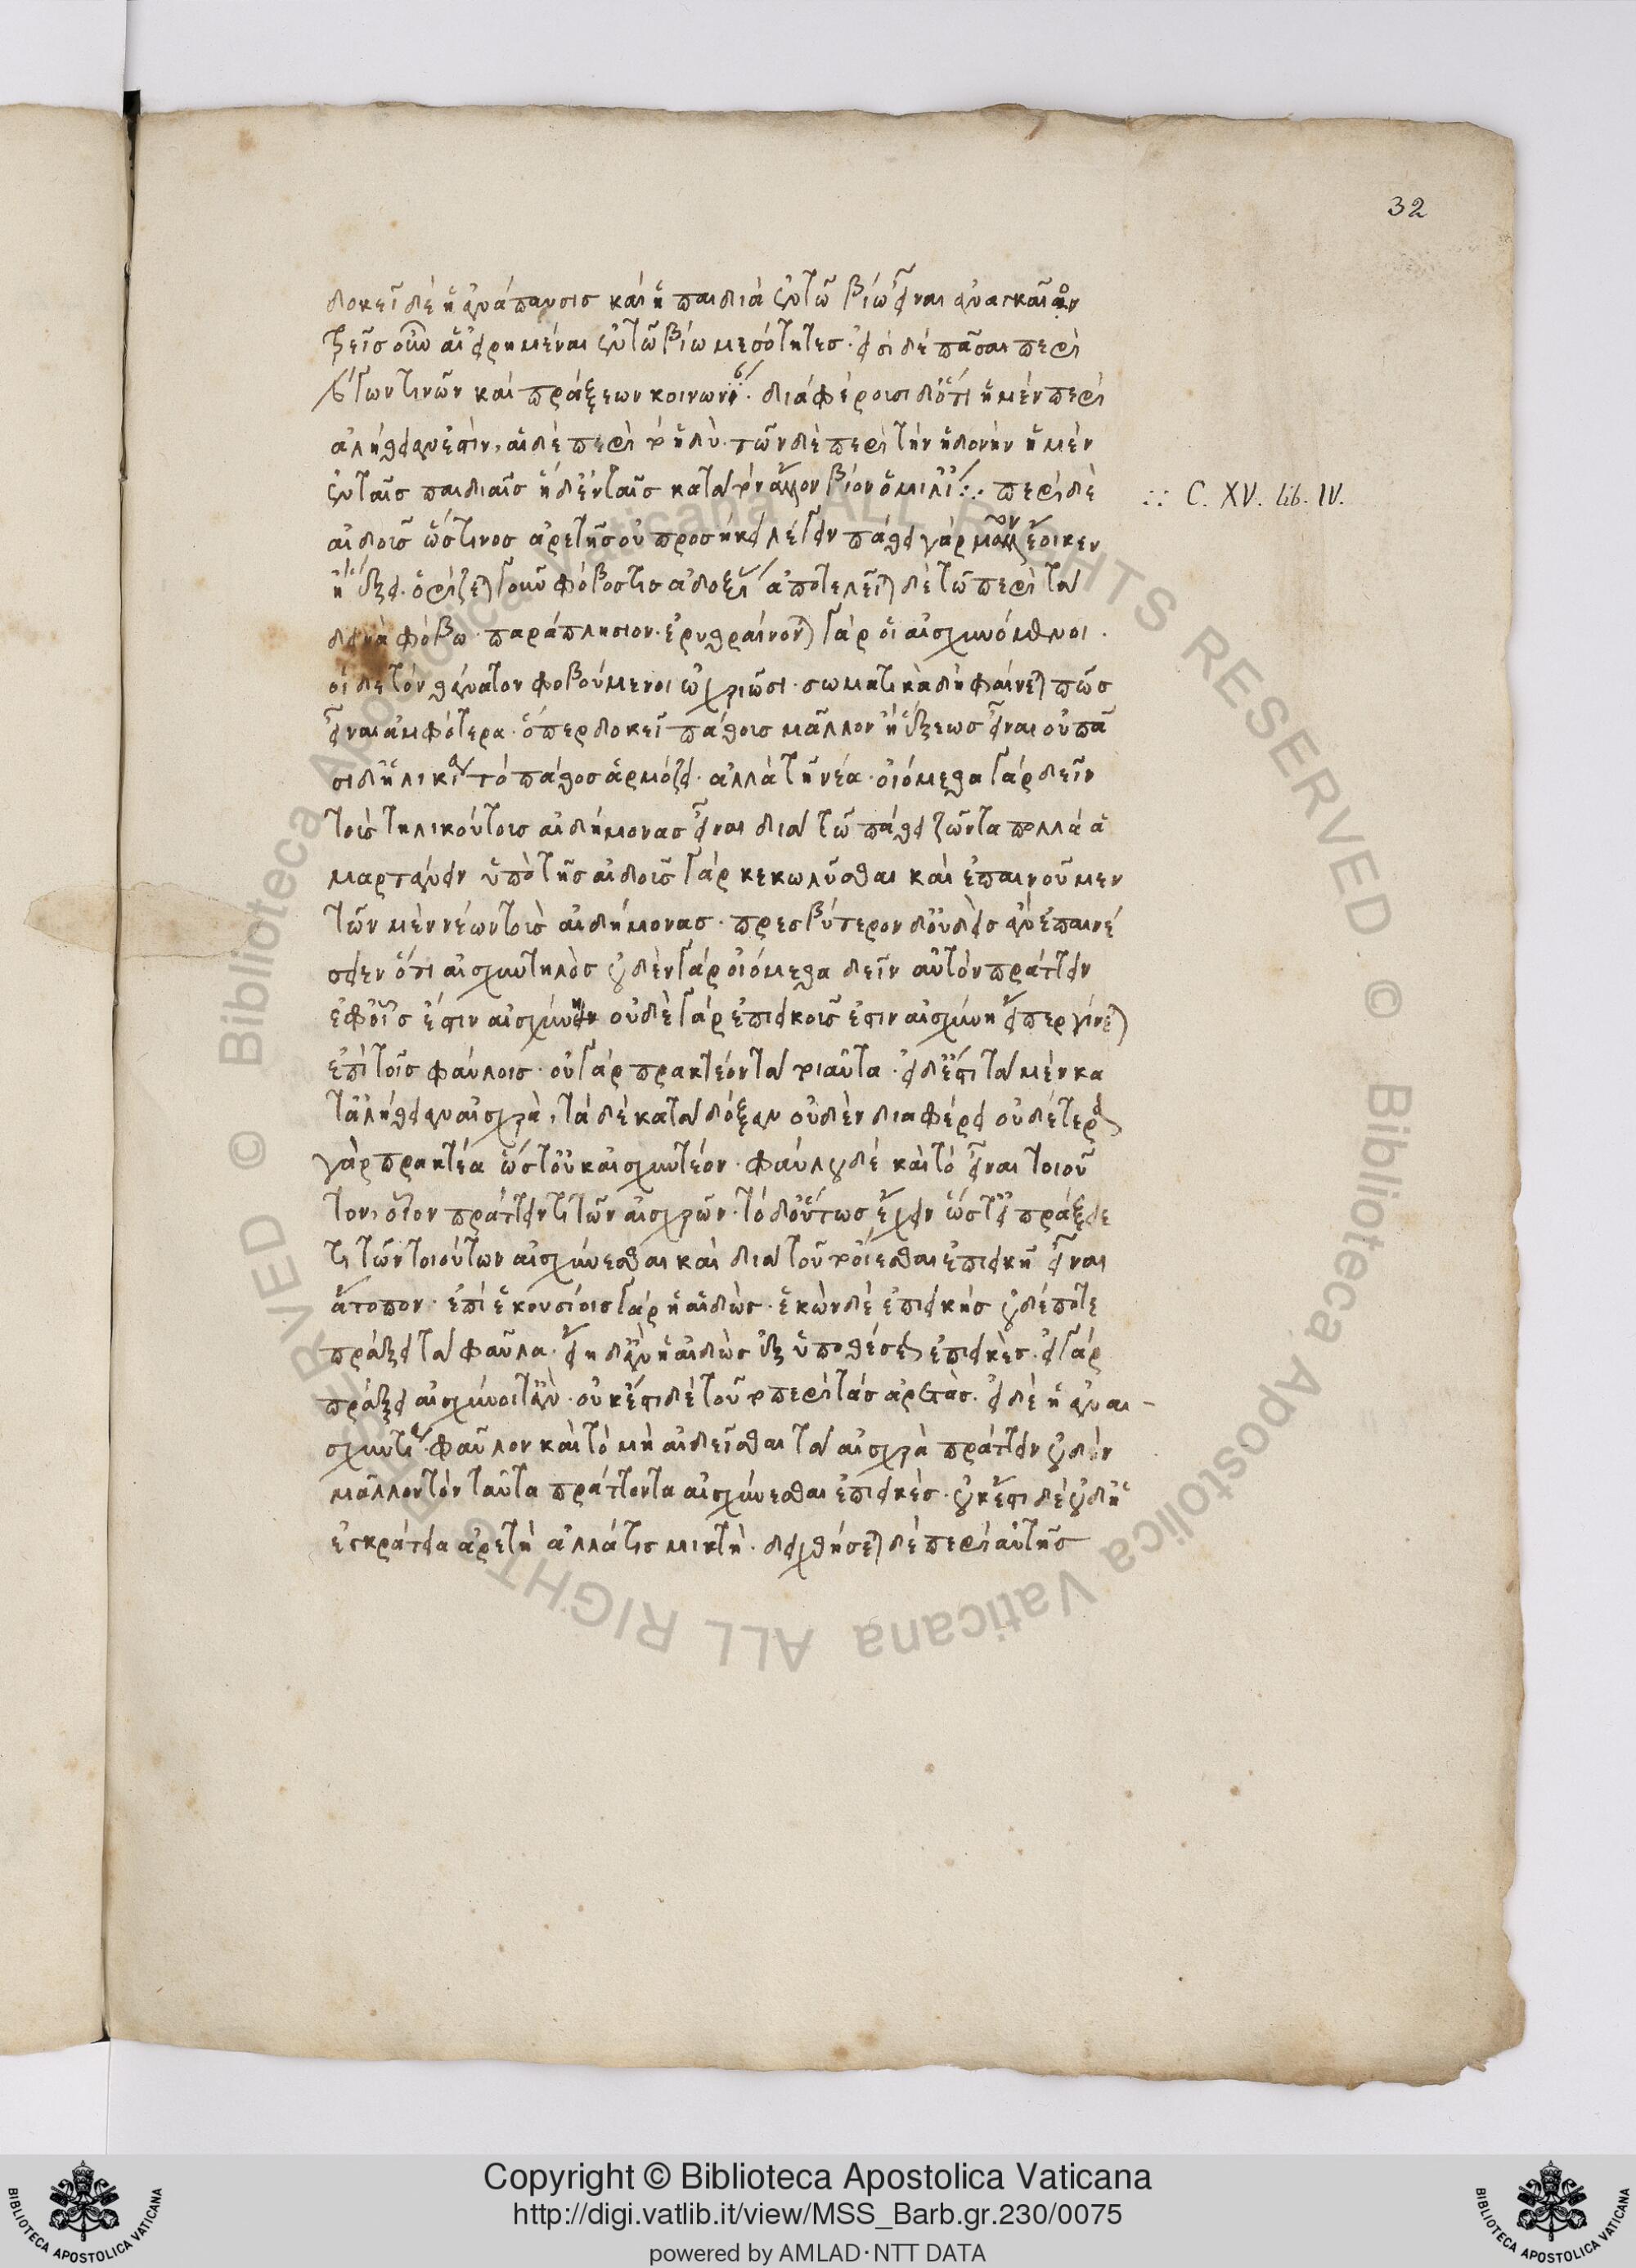 32
δοκεῖ δὲ ἡ ἀνάπαυσις καὶ ἡ παιδιὰ ἐν τῶ βίω εἶναι ἀναγκαῖον
τρεῖς οὖν αἱ εἰρημέναι ἐν τῶ βίω μεσότητες· εἰσὶ δὲ πᾶσαι περὶ
λόγων τινῶν καὶ πράξεων κοινωνίαν· διαφέρουσι δ' ὅτι ἡ μὲν περὶ
ἀλήθειαν ἐστὶν, αἱ δὲ περὶ τὸ ἡδύ· τῶν δὲ περὶ τὴν ἡδονὴν ἡ μὲν
ἐν ταῖς παιδιαῖς ἡ δ' ἐν ταῖς κατὰ τὸν ἄλλον βίον ὁμιλίαις ∴ περὶ δὲ
∴ C. XV. lib. IV.
αἰδοῦς ὥς τινος ἀρετῆς οὐ προσήκει λέγειν πάθει γὰρ μᾶλλον ἔοικεν
ἢ ἕξει· ὁρίζεται γοῦν φόβος τις ἀδοξίας ἀποτελεῖται δὲ τῶ περὶ τὰ
δεινὰ φόβω παραπλήσιον· ἐρυθραίνονται γὰρ οἱ αἰσχυνόμενοι·
οἱ δὲ τὸν θάνατον φοβούμενοι ὠχριῶσι· σωματικὰ δὴ φαίνεται πῶς
εἶναι ἀμφότερα· ὅπερ δοκεῖ πάθους μᾶλλον ἢ ἕξεως εἶναι οὐ πά
σι δ' ἡλικία τὸ πάθος ἁρμόζει· ἀλλὰ τῆ νέα· οἰόμεθα γὰρ δεῖν
τοὺς τηλικούτους αἰδήμονας εἶναι διὰ τῶ πάθει ζῶντα πολλὰ ἁ
μαρτάνειν ὑπὸ τῆς αἰδοῦς γὰρ κεκωλῦσθαι καὶ ἐπαινοῦμεν
τῶν μὲν νέων τοὺς αἰδήμονας· πρεσβύτερον δ' οὐδεὶς ἂν ἐπαινέ
σειεν ὅτι αἰσχυντηλὸς οὐδὲν γὰρ οἰόμεθα δεῖν αὐτὸν πράττειν
ἐφ' οἷς ἐστιν αἰσχύνην οὐδὲ γὰρ ἐπιεικοῦς ἐστιν αἰσχύνη εἴπερ γίνεται
ἐπὶ τοῖς φαύλοις· οὐ γὰρ πρακτέον τὰ τοιαῦτα· εἰ δ' ἐστὶ τὰ μὲν κα
τ' ἀλήθειαν αἰσχρὰ, τὰ δὲ κατὰ δόξαν οὐδὲν διαφέρει οὐδέτερα
γὰρ πρακτέα ὥστ' οὐκ αἰσχυντέον· φαύλου δὲ καὶ τὸ εἶναι τοιοῦ
τον, οἷον πράττειν τι τῶν αἰσχρῶν· τὸ δ' οὕτως ἔχειν ὥστ' εἰ πράξειε
τι τῶν τοιούτων αἰσχύνεσθαι καὶ διὰ τοῦτ' οἴεσθαι ἐπιεικῆ εἶναι
ἄτοπον· ἐπὶ ἑκουσίοις γὰρ ἡ αἰδὼς· ἑκὼν δὲ ἐπιεικὴς οὐδέποτε
πράξει τὰ φαῦλα· εἴη δ' ἂν ἡ αἰδὼς ἐξ ὑποθέσεως ἐπιεικὲς· εἰ γὰρ
πράξει αἰσχύνοιτ' ἄν· οὐκ ἔστι δὲ τοῦτο περὶ τὰς ἀρετὰς· εἰ δὲ ἡ ἀναι-
σχυντία φαῦλον καὶ τὸ μὴ αἰδεῖσθαι τὰ αἰσχρὰ πράττειν οὐδὲν
μᾶλλον τὸν ταῦτα πράττοντα αἰσχύνεσθαι ἐπιεικές· οὐκ ἔστι δὲ οὐδ' ἡ
ἐγκράτεια ἀρετὴ ἀλλά τις μικτὴ· δειχθήσεται δὲ περὶ αὐτῆς
© Biblioteca Apostolica Vaticana ALL RIGHTS RESERVED © Biblioteca Apostolica Vaticana ALL RIGHTS RESERVED
Copyright © Biblioteca Apostolica Vaticana
http://digi.vatlib.it/view/MSS_Barb.gr.230/0075
powered by AMLAD·NTT DATA
BIBLIOTECA APOSTOLICA VATICANA
BIBLIOTECA APOSTOLICA VATICANA